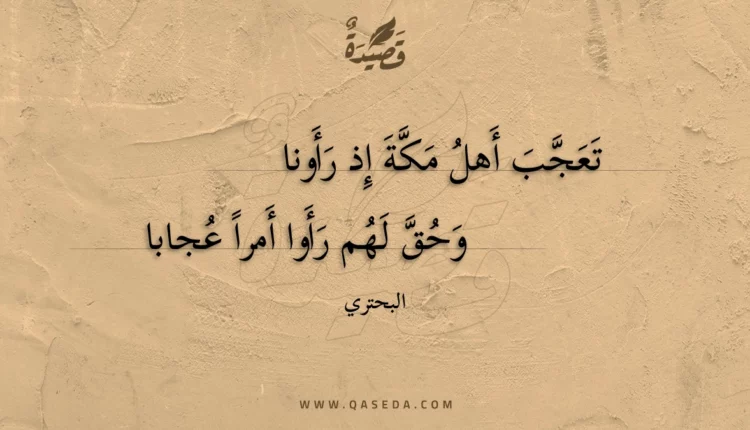 قَصِيْدَةٌ
تَعَجَّبَ أَهلُ مَكَّةَ إِذ رَأَونا
وَحُقَّ لَهُم رَأَوا أَمراً عُجابا
البحتري
WWW.QASEDA.COM